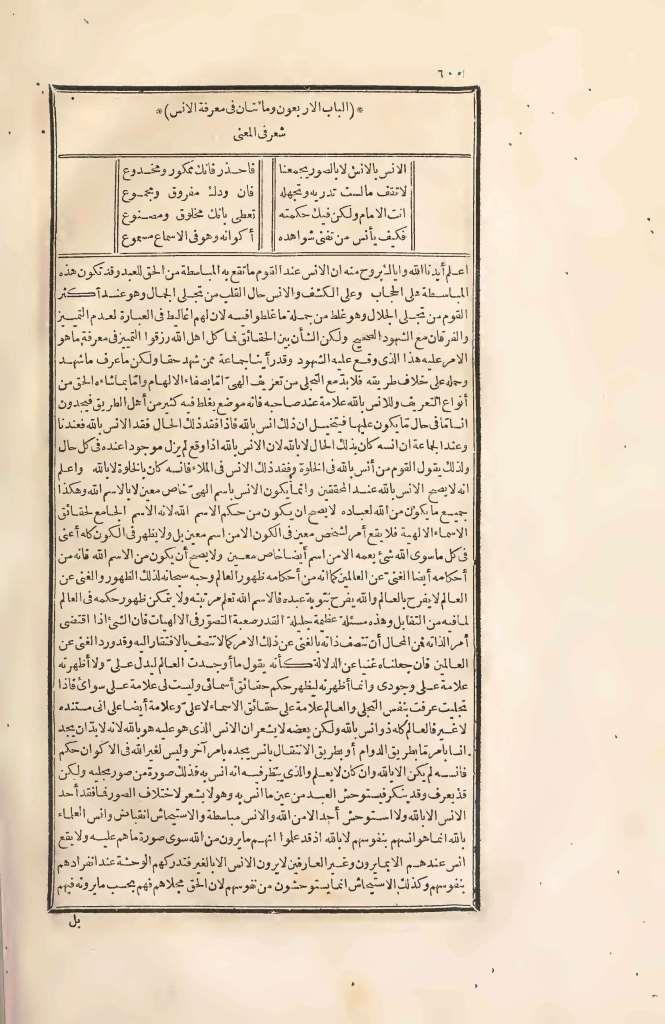 ٦٠٥
* (الباب الاربعون ومائتان فى معرفة الانس) *
شعر فى المعنى
الانس بالانس لا بالصور يجمعنا فاحذر فانك ممكور ومخدوع
لا تقف مالست تدريه وتجهله فان ودك مفروق ومجموع
انت الامام ولكن فيك حكمته تعطى بانك مخلوق ومصنوع
فكيف يأنس من تفنى شواهده أكوانه وهو فى الاسماع مسموع
اعلم أيدنا الله واياك بروح منه ان الانس عند القوم ما تقع به المباسطة من الحق للعبد وقد تكون هذه
المباسطة على الحجاب وعلى الكشف والانس حال القلب من تجلى الجمال وهو عند أكثر
القوم من تجلى الجلال وهو غلط من جملة ما غلطوا فيه لان لهم أغاليط فى العبارة لعدم التمييز
والفرقان مع الشهود الصحيح ولكن الشأن بين الحقائق فما كل اهل الله رزقوا التمييز فى معرفة ما هو
الامر عليه هذا الذى وقع عليه الشهود وقد رأينا جماعة ممن شهد حقا ولكن ما عرف ما شهد
وحمله على خلاف طريقه فلا بد مع التجلى من تعريف الهى امّا بصفاء الالهام وامّا بما شاء الحق من
أنواع التعريف وللانس بالله علامة عند صاحبه فانه موضع يغلط فيه كثير من أهل الطريق فيجدون
انسا مّا فى حال مّا يكون عليها فيتخيل ان ذلك انس بالله فاذا فقد ذلك الحال فقد الانس بالله فعندنا
وعند الجماعة ان انسه كان بذلك الحال لا بالله لان الانس بالله اذا وقع لم يزل موجودا عنده فى كل حال
ولذلك يقول القوم من أنس بالله فى الخلوة وفقد ذلك الانس فى الملاء فانسه كان بالخلوة لا بالله واعلم
انه لا يصح الانس بالله عند المحققين وانما يكون الانس باسم الهى خاص معين لا بالاسم الله وهكذا
جميع ما يكون من الله لعباده لا يصح ان يكون من حكم الاسم الله لانه الاسم الجامع لحقائق
الاسماء الالهية فلا يقع أمر لشخص معين فى الكون الا من اسم معين بل ولا يظهر فى الكون كله أعنى
فى كل ما سوى الله شئ يعمه الا من اسم أيضا خاص معين ولا يصح أن يكون من الاسم الله فانه من
أحكامه أيضا الغنى عن العالمين كما انه من أحكامه ظهور العالم وحبه سبحانه لذلك الظهور والغنى عن
العالم لا يفرح بالعالم والله يفرح بتوبة عبده فالاسم الله تعلم مرتبته ولا يتمكن ظهور حكمه فى العالم
لما فيه من التقابل وهذه مسئلة عظيمة جليلة القدر صعبة التصوّر فى الالهيات فان الشئ اذا اقتضى
أمر الذاته فمن المحال أن تتصف ذاته بالغنى عن ذلك الامر كما لا تتصف بالافتقار اليه وقد ورد الغنى عن
العالمين فان جعلناه غنيا عن الدلالة كأنه يقول ما أوجدت العالم ليدل علىّ ولا أظهرته
علامة على وجودى وانما أظهرته ليظهر حكم حقائق أسمائى وليست لى علامة على سوائ فاذا
تجليت عرفت بنفس التجلى والعالم علامة على حقائق الاسماء لا علىّ وعلامة أيضا على انى مستنده
لا غير فالعالم كله ذو انس بالله ولكن بعضه لا يشعر ان الانس الذى هو عليه هو بالله لانه لا بدّ ان يجد
انسا بأمر مّا بطريق الدوام أو بطريق الانتقال بانس يجده بامر آخر وليس لغير الله فى الاكوان حكم
فانسه لم يكن الا بالله وان كان لا يعلم والذى ينظر فيه انه انس به فذلك صورة من صور تجليه ولكن
قد يعرف وقد ينكر فيستوحش العبد من عين ما انس به وهو لا يشعر لاختلاف الصور فما فقد أحد
الانس الا بالله ولا استوحش أحد الا من الله والانس مباسطة والاستيحاش انقباض وانس العلماء
بالله انما هو انسهم بنفوسهم لا بالله اذ قد علموا انهم ما يرون من الله سوى صورة ما هم عليه ولا يقع
انس عندهم الا بما يرون وغير العارفين لا يرون الانس الا بالغير فتدركهم الوحشة عند انفرادهم
بنفوسهم وكذلك الاستيحاش انما يستوحشون من نفوسهم لان الحق مجلاهم فهم بحسب ما يرونه فيهم
بل